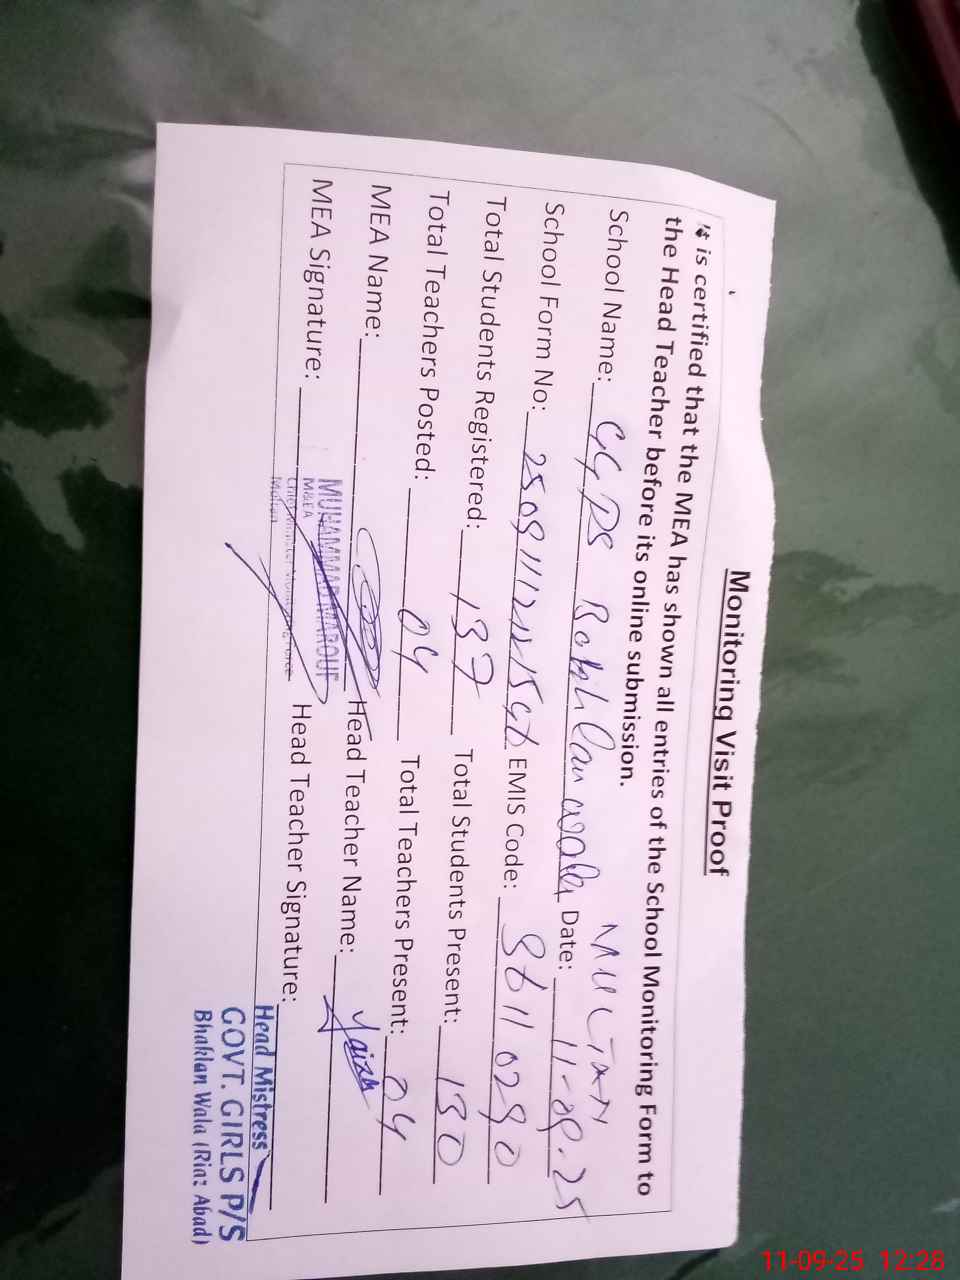 Monitoring Visit Proof
is certified that the MEA has shown all entries of the School Monitoring Form to
the Head Teacher before its online submission.
MULTAN
School Name: GGPS Bakhlan wala Date: 11-09-25
School Form No: EMIS Code:
Total Students Registered: 137 Total Students Present: 130
Total Teachers Posted: 04 Total Teachers Present: 04
MEA Name: Head Teacher Name: Faiza
MEA Signature: Head Teacher Signature:
MUHAMMAD MAROUF
M&EA
Chief Minister Monitoring Force
Multan
Head Mistress
GOVT. GIRLS P/S
Bhaklan Wala (Riaz Abad)
11-09-25 12:28